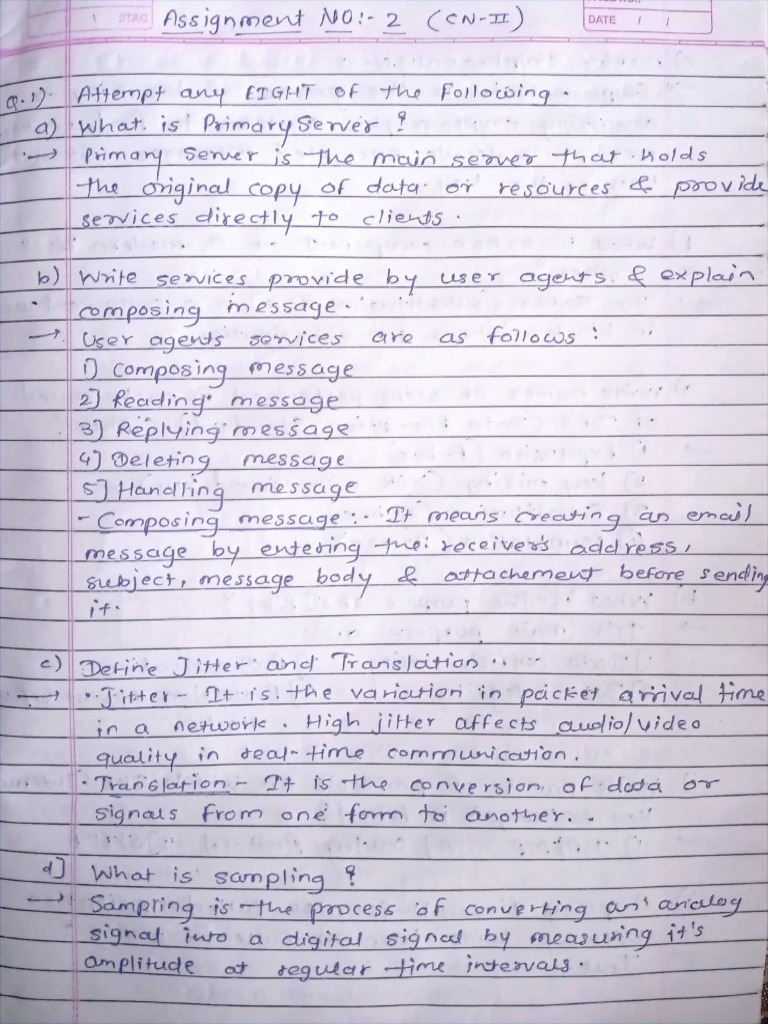 Assignment NO:- 2 (CN-II)
DATE
Q.1) Attempt any EIGHT of the Following.
a) What is Primary Server ?
→ Primary Server is the main server that holds
the original copy of data or resources & provide
services directly to clients.
b) Write services provide by user agents & explain
composing message.
→ User agents services are as follows :
1) Composing message
2] Reading message
3] Replying message
4] Deleting message
5] Handling message
- Composing message :- It means creating an email
message by entering the receiver's address,
subject, message body & attachement before sending
it.
c) Define Jitter and Translation.
→ • Jitter - It is the variation in packet arrival time
in a network. High jitter affects audio/video
quality in real-time communication.
• Translation - It is the conversion of data or
signals from one form to another.
d] What is sampling ?
→ Sampling is the process of converting an analog
signal into a digital signal by measuring it's
amplitude at regular time intervals.